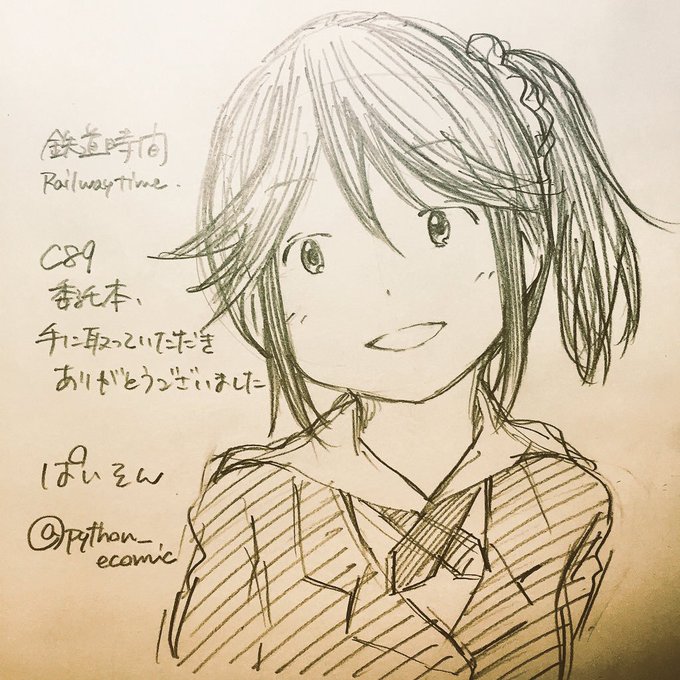 鉄道時間
Railwaytime.
C89
委託本、
手に取っていただき
ありがとうございました
ぱいそん
@python_
ecomic